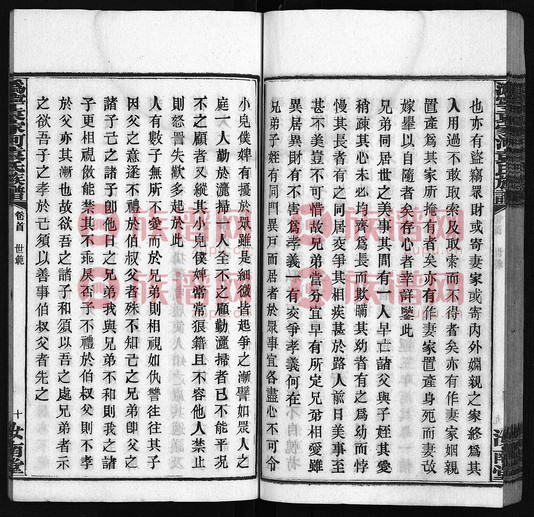 也亦有盜竊眾財或寄妻家或寄內外姻親之家終為其
人用過不敢取索及取索而不得者矣亦有作妻家姻親
置產為其家所掩有者矣亦有作妻家置產身死而妻改
嫁舉以自隨者矣存心者幸詳鑒此
兄弟同居世之美事其間有一人早亡諸父與子姪其愛
稍疎其心未必均齊為長而欺瞞其幼者有之為幼而悖
慢其長者有之同居交爭其相疾甚於路人前日美事至
甚不美豈不可惜故兄弟當分宜早有所定兄弟相愛雖
異居異財有不害為孝義一有交爭孝義何在
兄弟子姪有同門異戶而居者於眾事宜各盡心不可令
小兒僕婢有擾於眾雖是細微皆起爭之漸譬如眾人之
庭一人勤於灑掃一人全不之顧勤灑掃者已不能平況
不之顧者又縱其小兒僕婢常常狼籍且不容他人禁止
則怒詈失歡多起於此
人有數子無所不愛而於兄弟則相視如仇讐往往其子
因父之意遂不禮於伯叔父者殊不知己之兄弟即父之
諸子己之諸子即他日之兄弟我與兄弟不和則我之諸
子更相視傚能禁其不乖戾否子不禮於伯叔父則不孝
於父亦其漸也故欲吾之諸子和須以吾之處兄弟者示
之欲吾子之孝於己須以善事伯叔父者先之
卷首
世範
十
汝南堂
族譜网
族譜网
族譜网
族譜网